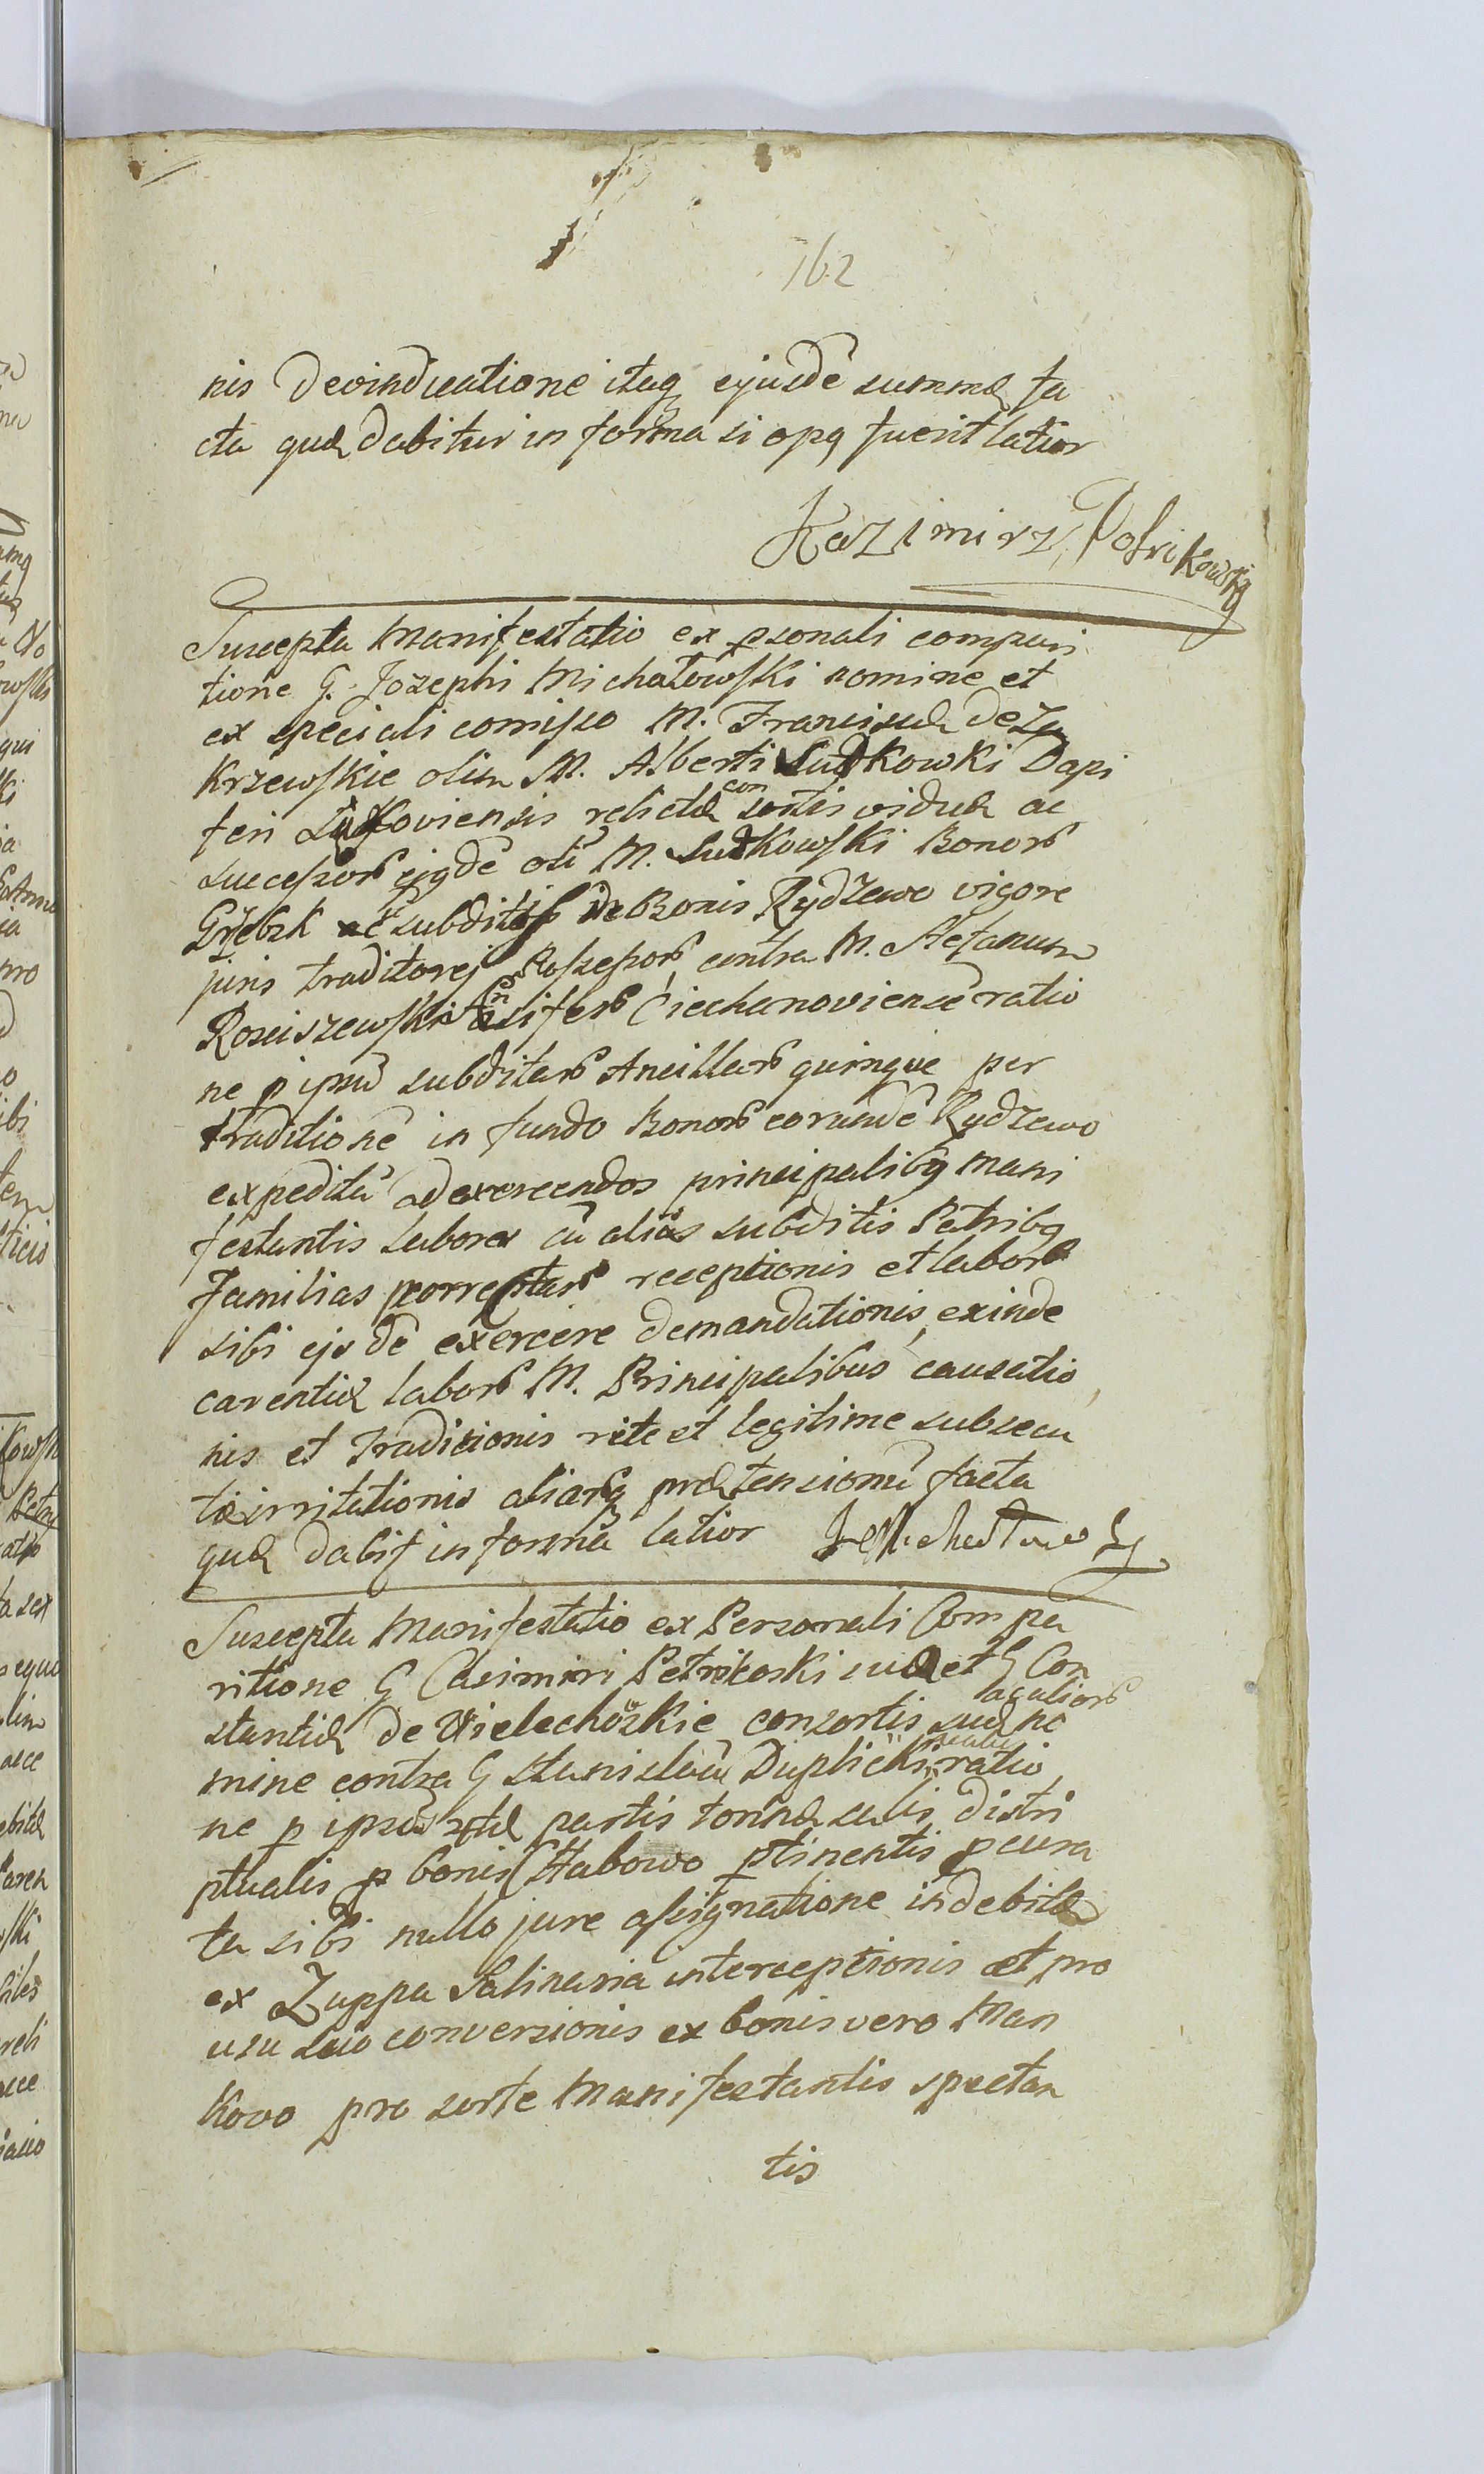 162
nis devindicatione itaq ejusdē summæ fa
cta quæ dabitur in forma si opq fuerit latior
Kazimirz Potrikowsky
Suscepta Manifestatio ex psonali compari
tione G. Jozephi Michałowski nomine et
ex speciali comisso M. Franciscæ de Za
krzewskie olim M. Alberti Sudkowki Dapi
feri relictæ consortis viduæ ac
succesor ejqdē oli M. Sudkowski Bonor
subditis de Bonis Rydzewo vigore
juris traditorej Possessor contra M. Stefanum
Rosciszewski Ensifer Ciechanoviensē ratio
ne p ipsū subditar Ancillar quinque per
traditionē in fundo Bonor eorundē Rydzewo
expeditū ad exercendos principalibq mani
festantis labores cū aliis subditis Patribq
Familias receptionis et labor
sibi ejsdē exercere demandationis exinde
carentiæ labor M. Principalibus causatio
nis et Tradicionis rite et legitime subsecu
tæ irritationis aliarq prætensionū facta
quæ dabit in forma latior
Suscepta Manifestatio ex Personali Compa
ritione G Casimiri Petrikoski suæ et G Con
stantiæ de Wielechoskie consortis suæ no
mine contra G Stanislaū Duplicki ratio
ne p ipsū partis tonnæ salis distri
ptualis p bonis Stabowo ptinentis pcura
ta sibi nullo jure assignatione indebitæ
ex Zuppa Salinaria interceptionis et pro
usu suo conversionis ex bonis vero Man
kovo pro sorte Manifestantis spectan
tis